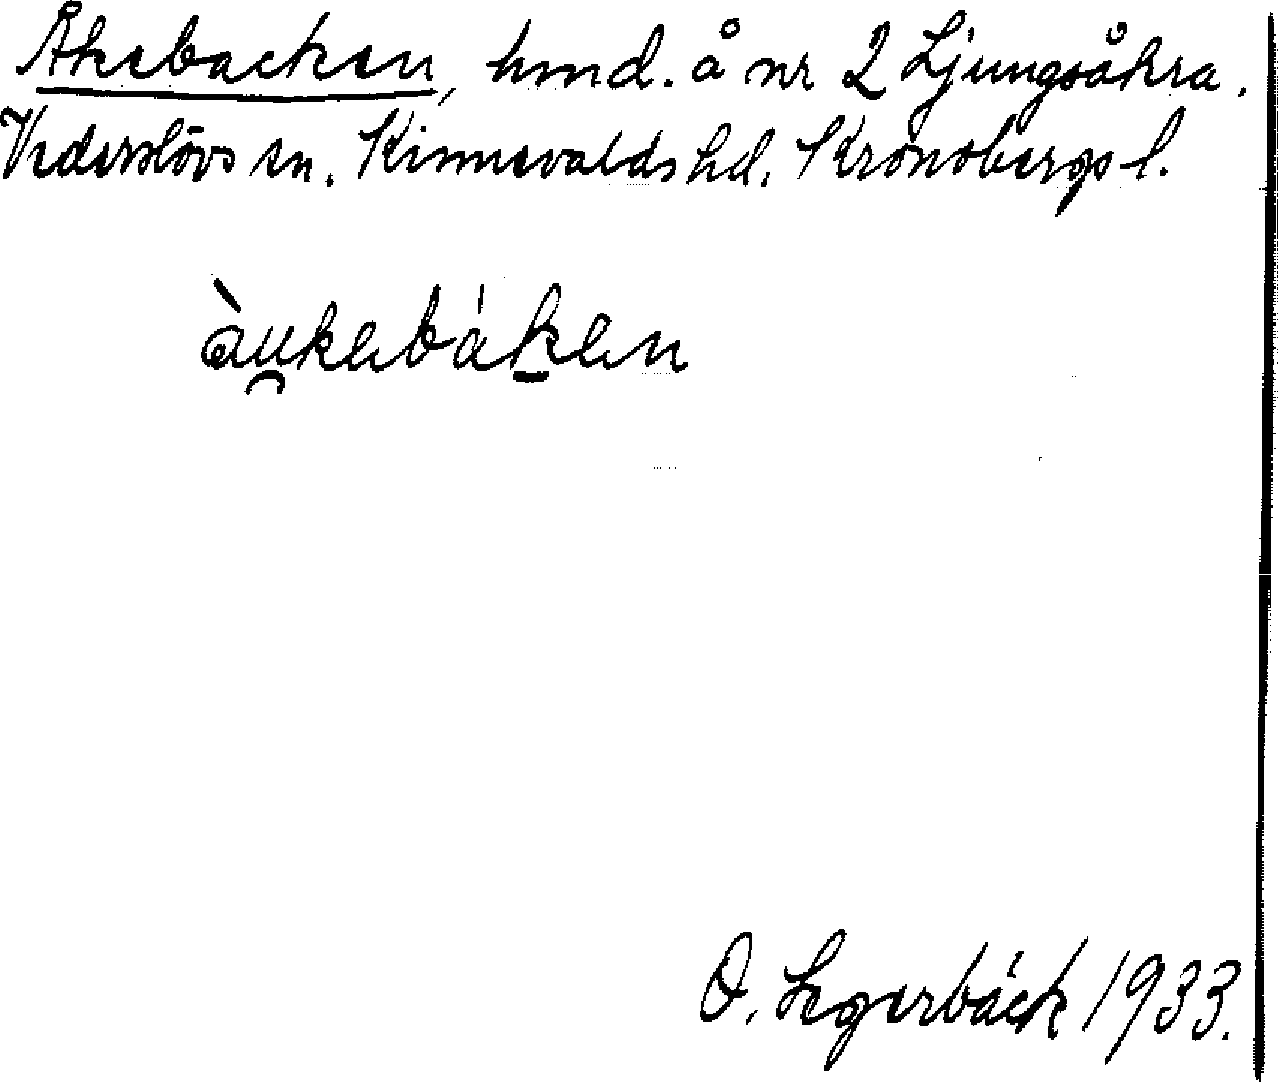 Åkebacken, hmd. å nr 2 Ljungsåkra.
Vederslövs sn. Kinnevalds hd. Kronobergs l.
àu̯kebák̲en
O. Legerbäck 1933.